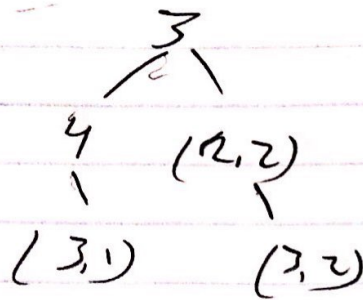 3
4 (2,2)
(3,1) (3,2)